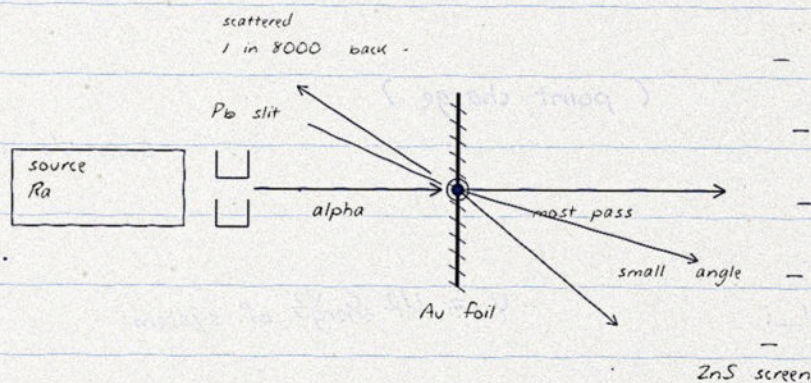 scattered
1 in 8000 back -
( point charge )
Pb slit
source
Ra
alpha
most pass
small angle
Au foil
ZnS screen